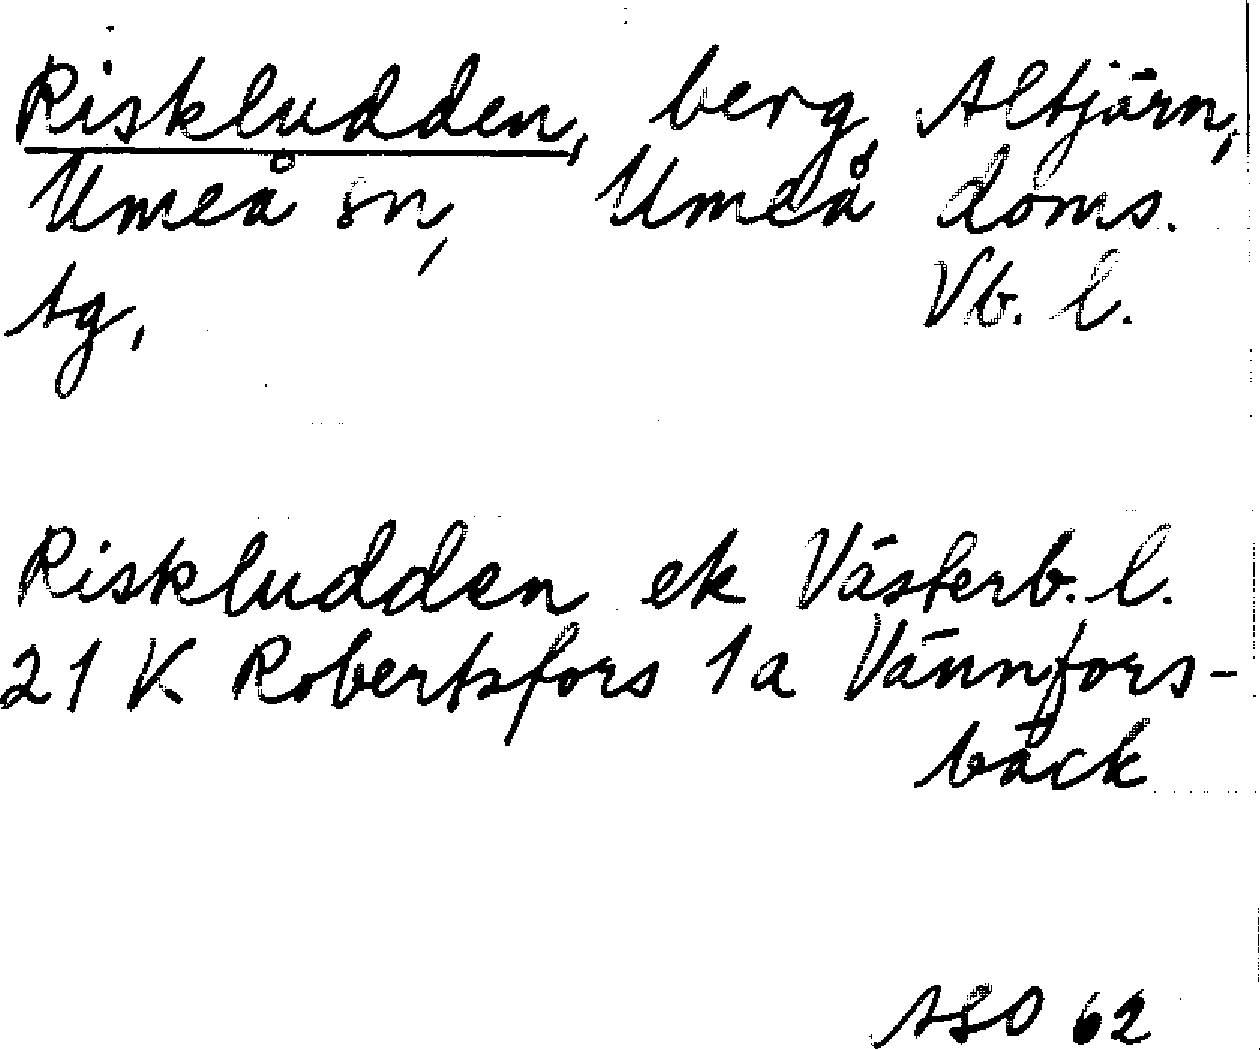 Riskludden, berg, Altjärn,
Umeå sn, Umeå doms.
tg, Vb. l.
Riskludden ek Västerb. l.
21 K Robertsfors 1a Vännfors-
bäck
ASO 62